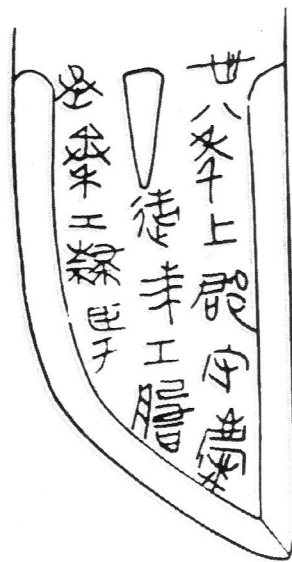 卅八年上郡守慶
造漆工
丞秦工隸臣于